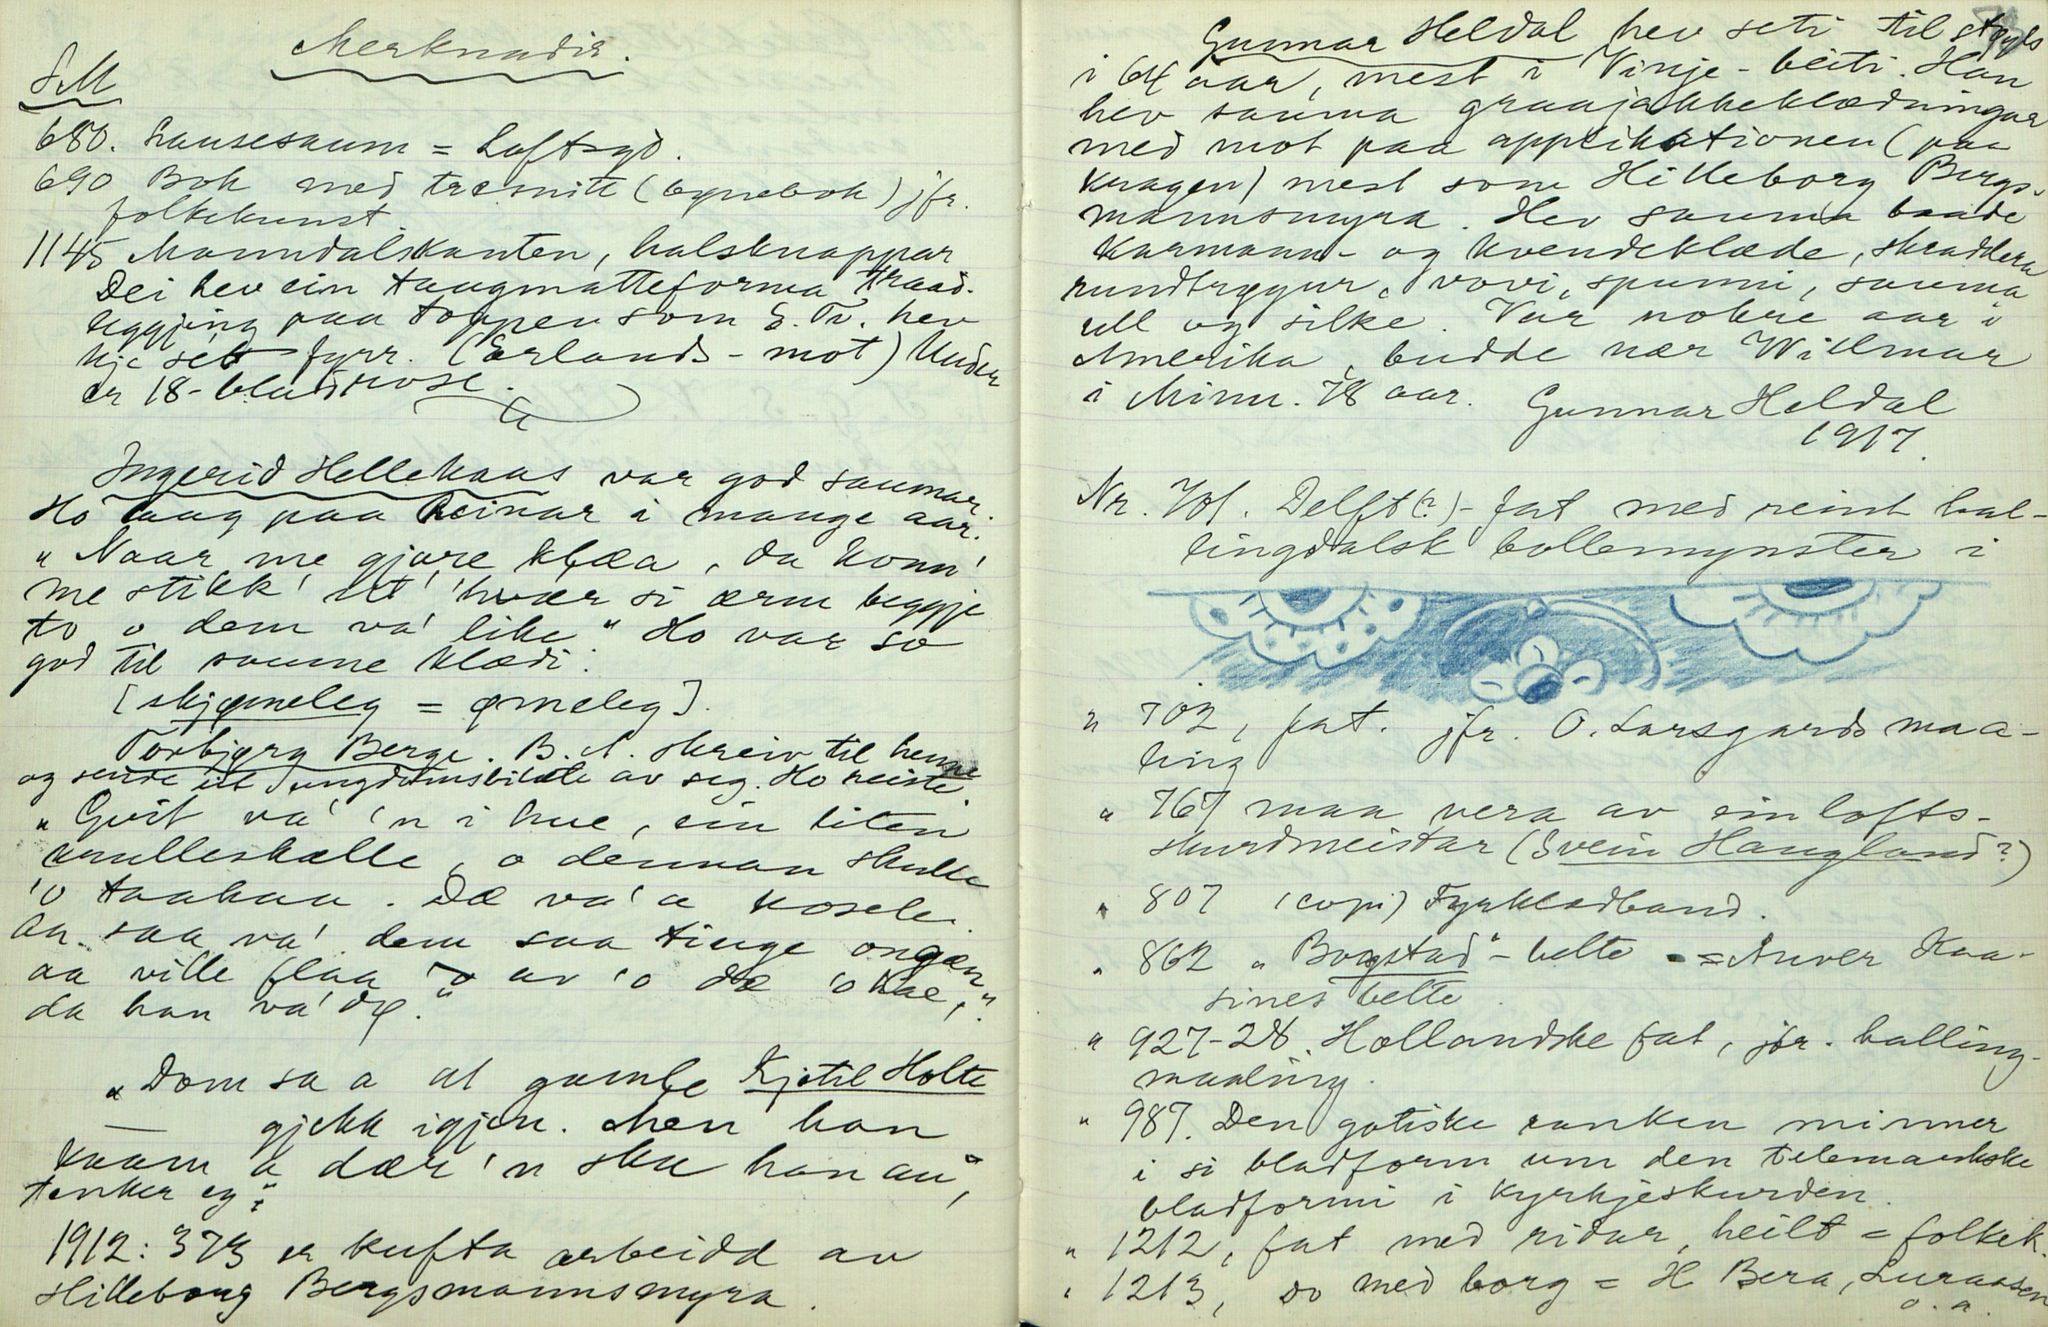 Merknadir.
S.M
680. Lausesaum = Loftsyd.
690 Bok med træsnitt (bynebok) jfr.
folkekunst.
1145 Manndalskanten, halsknappar
Dei hev ein taugmatteforma traad-
leggjing paa toppen som E. Tv. hev
kje set fyrr. (Erlands-mot) Under
er 18-blad rose.
Ingerid Hellekaas var god saumar.
Ho laag paa Reinar i mange aar.
"Naar me gjøre klæa, da konn'
me stikk' ut' hvær si ærm beggje
to, o dem va' like" Ho var so
god til saume klædi.
[skjømeleg = ømeleg].
Torbjørg Berge. B. A. skreiv til henne
og sende eit Ungdomsbilæte av seg. Ho reiste.
"Gvit va' 'n i hue, ein liten
krulleskalle, o dennan skulle
'o taakaa. Dæ va' a kosele.
Aa saa va' dem saa tinge ongan
aa ville flaa 'o av 'o dæ 'o hae,
da han va' dø."
"Dom sa a at gamle Kjetil Holte
— gjekk igjen. Men han
kaam a dær 'n sku han au",
tenker eg".
1912: 373 er kufta arbeidd av
Hilleborg Bergsmannsmyra.
Gunnar Heldal hev seti til
i 64 aar, mest i Vinje-beiti. Han
hev sauma graajakkeklædningar
med mot paa applikationen (paa
kragen) mest som Hilleborg Bergs-
mannsmyra. Hev sauma baade
Karmann- og Kvendeklæde, skraddera
rundtrøyur, vovi, spunni, sauma
ull og silke. Var nokre aar i
Amerika, budde nær Willmar
i Minn. 78 aar. Gunnar Heldal
1917.
Nr. 701. Delft(?)-fat med reint hal-
lingdalsk bollemynster i
" 702, fat. jfr. O. Sarsgards maa-
ling
" 767 maa vera av ein lofts-
skurdmeistar (Svein Haugland?)
" 807 (copi) Fyrkladband.
" 862 "Bogstad"-belte = Anver Kaa-
sines belte.
" 927-28. Hollandske fat, jfr. halling-
maaling.
" 987. Den gotiske ranken minner
i si bladform um den telemarkske
bladformi i Kyrkjeskurden.
" 1212, fat med ridar, heilt = folkek.
" 1213, do med borg = H Bera, Luraasen
o. a.